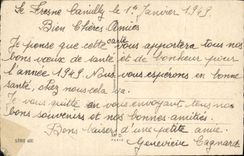 Le Fresne Camilly le 1er Janvier 1949
Bien Chères Amies
Je pense que cette carte vous apportera tous nos
bons vœux de santé et de bonheur pour
l'année 1949. Nous vous espérons en bonne
santé, chez nous cela va.
Je vous quitte en vous envoyant tous nos
bons souvenirs et nos bonnes amitiés.
Bons baisers d'une petite amie.
Geneviève Cagnard
SÉRIE